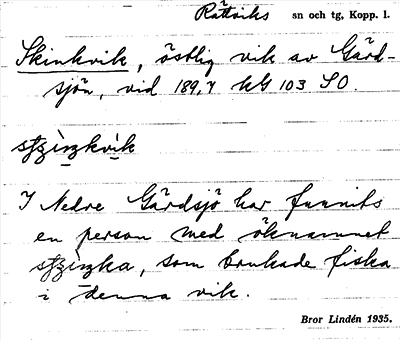 Rättviks sn och tg, Kopp. l.
Skinkvik, östlig vik av Gärd-
sjön, vid 189,7 hG 103 SO.
I Nedre Gärdsjö har funnits
en person med öknamnet
, som brukade fiska
i denna vik.
Bror Lindén 1935.